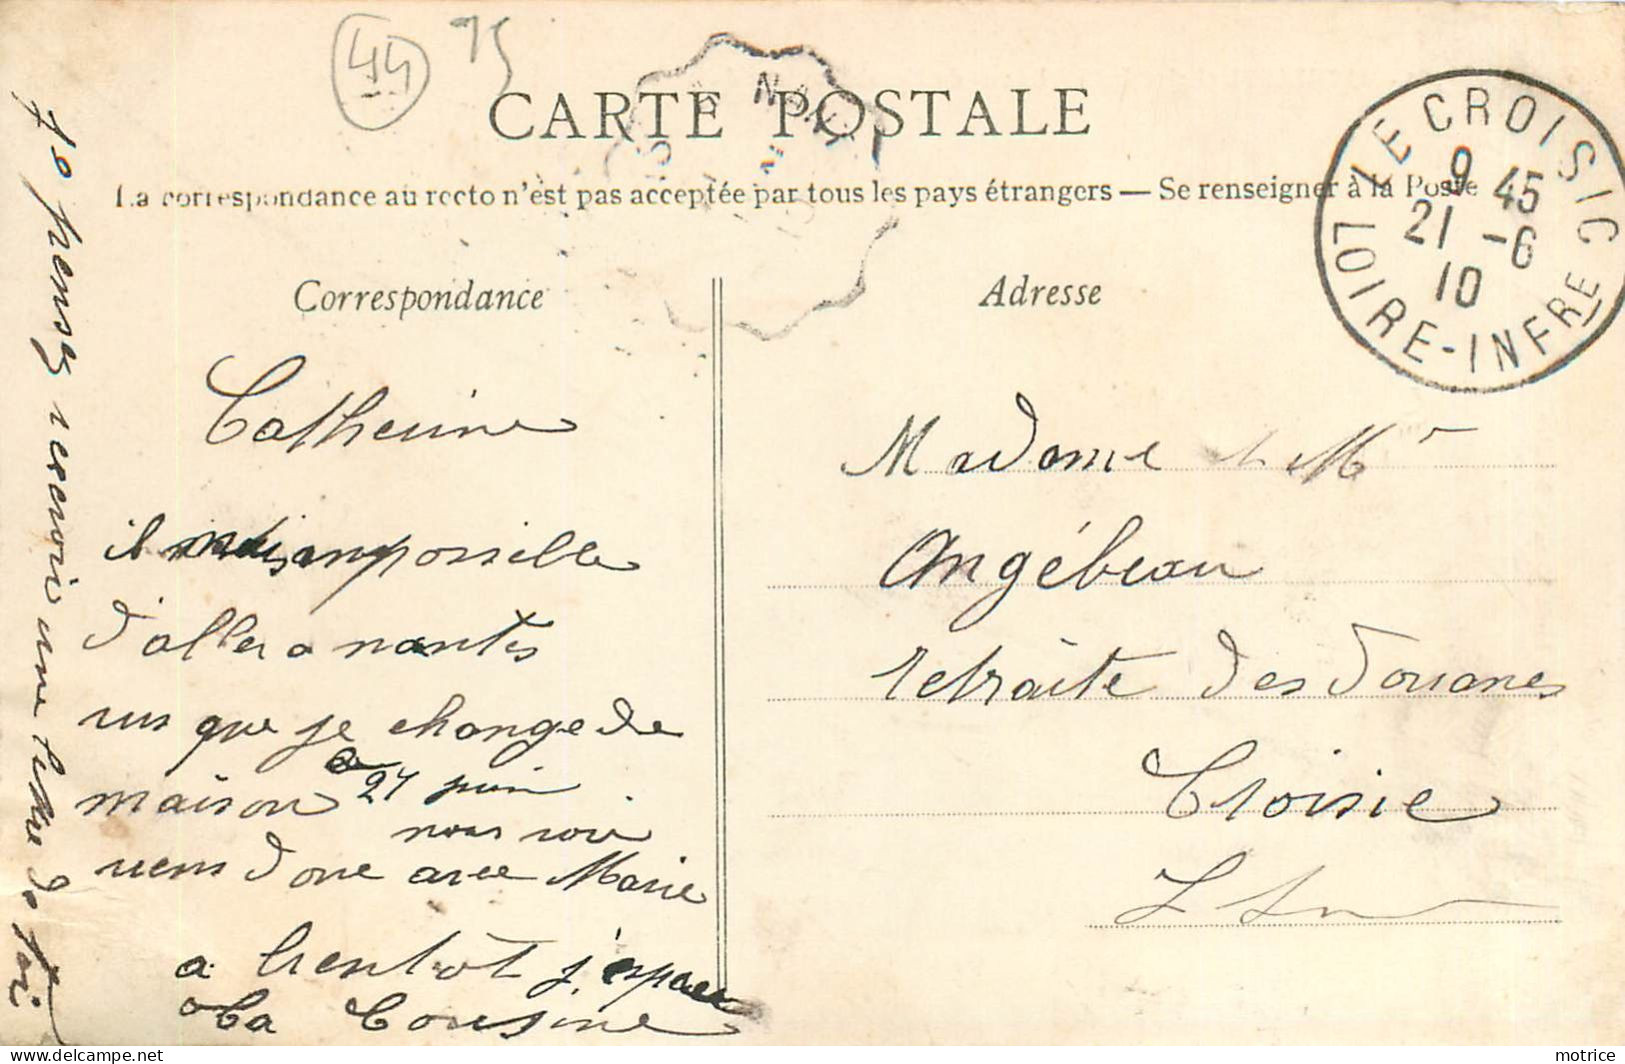 44 75
CARTE POSTALE
La correspondance au recto n'est pas acceptée par tous les pays étrangers — Se renseigner à la Poste
LE CROISIC
9 45
21 -6
10
LOIRE-INFRE
Correspondance
Catherine
il impossible
d'aller a nantes
vus que je change de
maison 24 juin
nous voir
viens donc avec Marie
a bientôt j'espaire
ta Cousine
je pensez recevoir une lettre de toi
Adresse
Madame et Mr
Angébeau
retraite des douanes
Croisic
L Inf
motrice